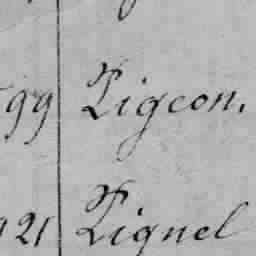 99 Pigeon.
21 Pignel